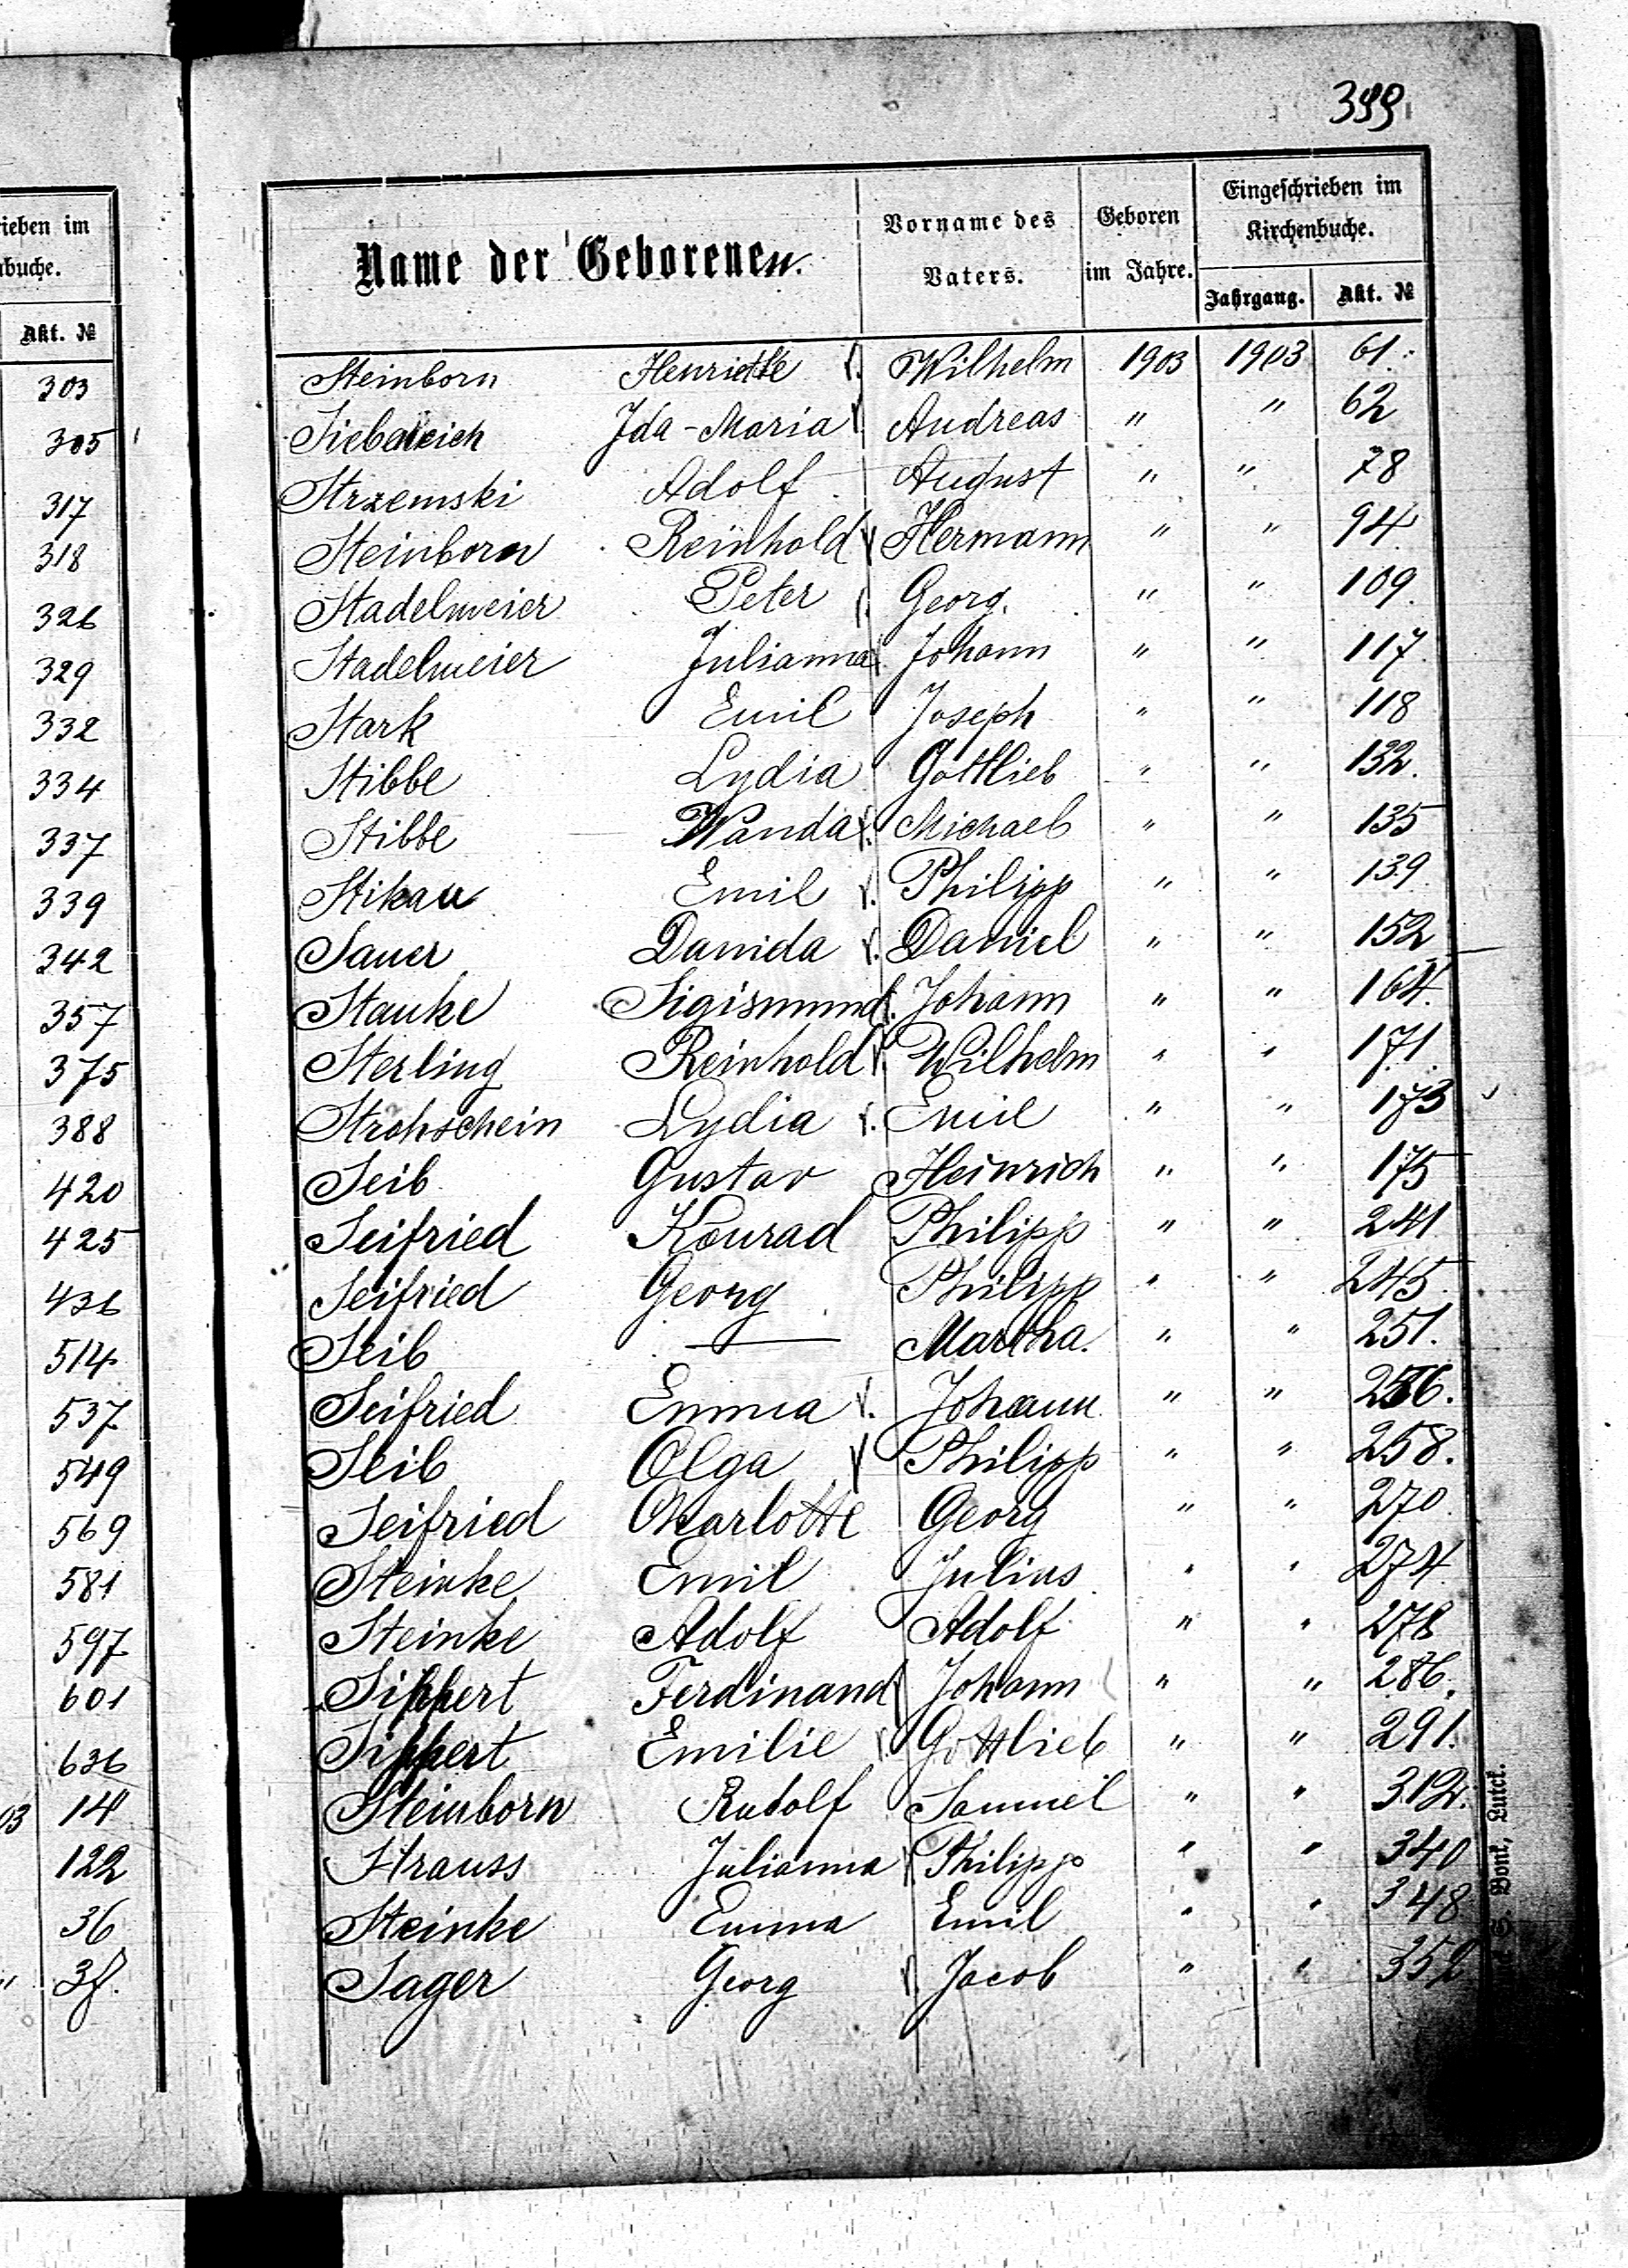 rieben im
buche.
Akt. №
303
305
317
318
326
329
332
334
337
339
342
357
375
388
420
425
436
514
537
549
569
581
597
601
636
03 14
122
36
" 38.
399
Name der Geborenen.
Vorname des Vaters.
Geboren im Jahre.
Eingeschrieben im Kirchenbuche.
Jahrgang. Akt. №
Steinborn Henriette Wilhelm 1903 1903 61.
Ida-Maria Andreas " " 62
Strzemski Adolf August " " 78
Steinborn Reinhold Hermann " " 94
Stadelmeier Peter Georg. " " 109.
Stadelmeier Julianna Johann " " 117.
Stark Emil Joseph " " 118
Stibbe Lydia Gottlieb " " 132.
Stibbe Wanda Michael " " 135
Stikau Emil Philipp " " 139.
Sauer Danida Daniel " " 152
Stanke Sigismund Johann " " 164.
Sterling Reinhold Wilhelm " " 171.
Strohschein Lydia Emil " " 173
Seib Gustav Heinrich " " 175
Seifried Konrad Philipp " " 241
Seifried Georg Philipp " " 245.
Seib — Martha. " " 251.
Seifried Emma Johann " " 256.
Seib Olga Philipp " " 258.
Seifried Charlotte Georg " " 270.
Steinke Emil Julius " " 274.
Steinke Adolf Adolf " " 278
Sippert Ferdinand Johann " " 286.
Sippert Emilie Gottlieb " " 291.
Steinborn Rudolf Samuel " " 312.
Strauss Julianna Philipp " " 340
Steinke Emma Emil " " 348
Sager Georg Jacob " " 352